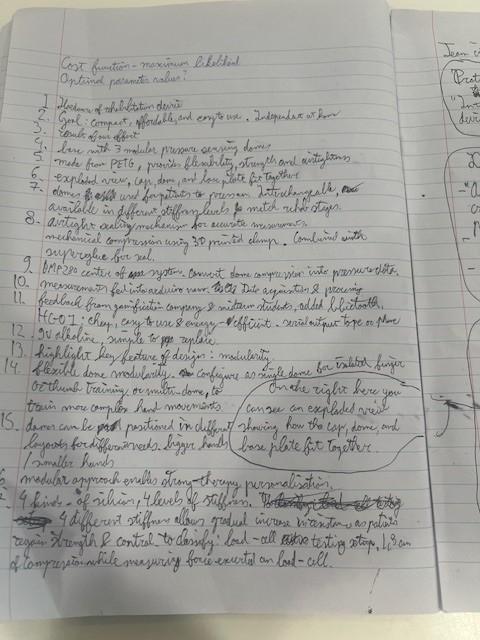 Cost function - maximum likelihood
Optimal parameter value?
1. Hardware of rehabilitation device
2. Goal: compact, affordable, and easy to use. Independent at home
3. Result of our effort
4. base with 3 modular pressure sensing domes
5. made from PETG, provides flexibility, strength and airtightness
6. exploded view, cap, dome, and base plate fit together
7. domes used for patients to press on. Interchangeable,
available in different stiffness levels to match rehab steps.
8. Airtight sealing mechanism for accurate measurements.
mechanical compression using 3D printed clamp. Combined with
superglue for seal.
9. BMP280 centre of system. Convert dome compression into pressure data.
10. measurements fed into arduino nano. Data acquisition & processing
11. feedback from gamification company & midterm students, added bluetooth.
HC-05: cheap, easy to use & energy-efficient. serial output to pc or phone
12. 9V alkaline, simple to replace.
13. highlight key feature of design: modularity.
14. flexible dome modularity. Configure as single dome for isolated finger
or thumb training, or multi-dome, to
train more complex hand movements
On the right here you
can see an exploded view
showing how the cap, dome and
base plate fit together.
15. domes can be positioned in different
layouts for different needs. bigger hands
/ smaller hands
modular approach enables strong therapy personalisation.
4 kinds of silicon, 4 levels of stiffness.
4 different stiffness allows gradual increase in resistance as patients
regain strength & control. to classify: load-cell testing setup,
of compression while measuring force exerted on load-cell.
Team